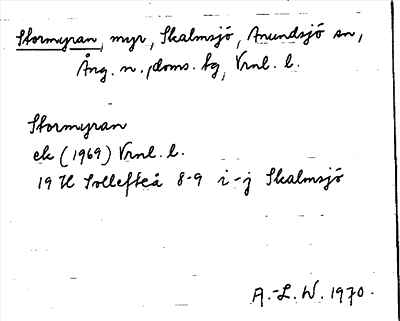 Stormyran, myr, Skalmsjö, Anundsjö sn,
Ång. n., doms. tg, Vrnl. l.
Stormyran
ek (1969) Vrnl. l.
19 H Sollefteå 8-9 i-j Skalmsjö
A.-L. W. 1970.